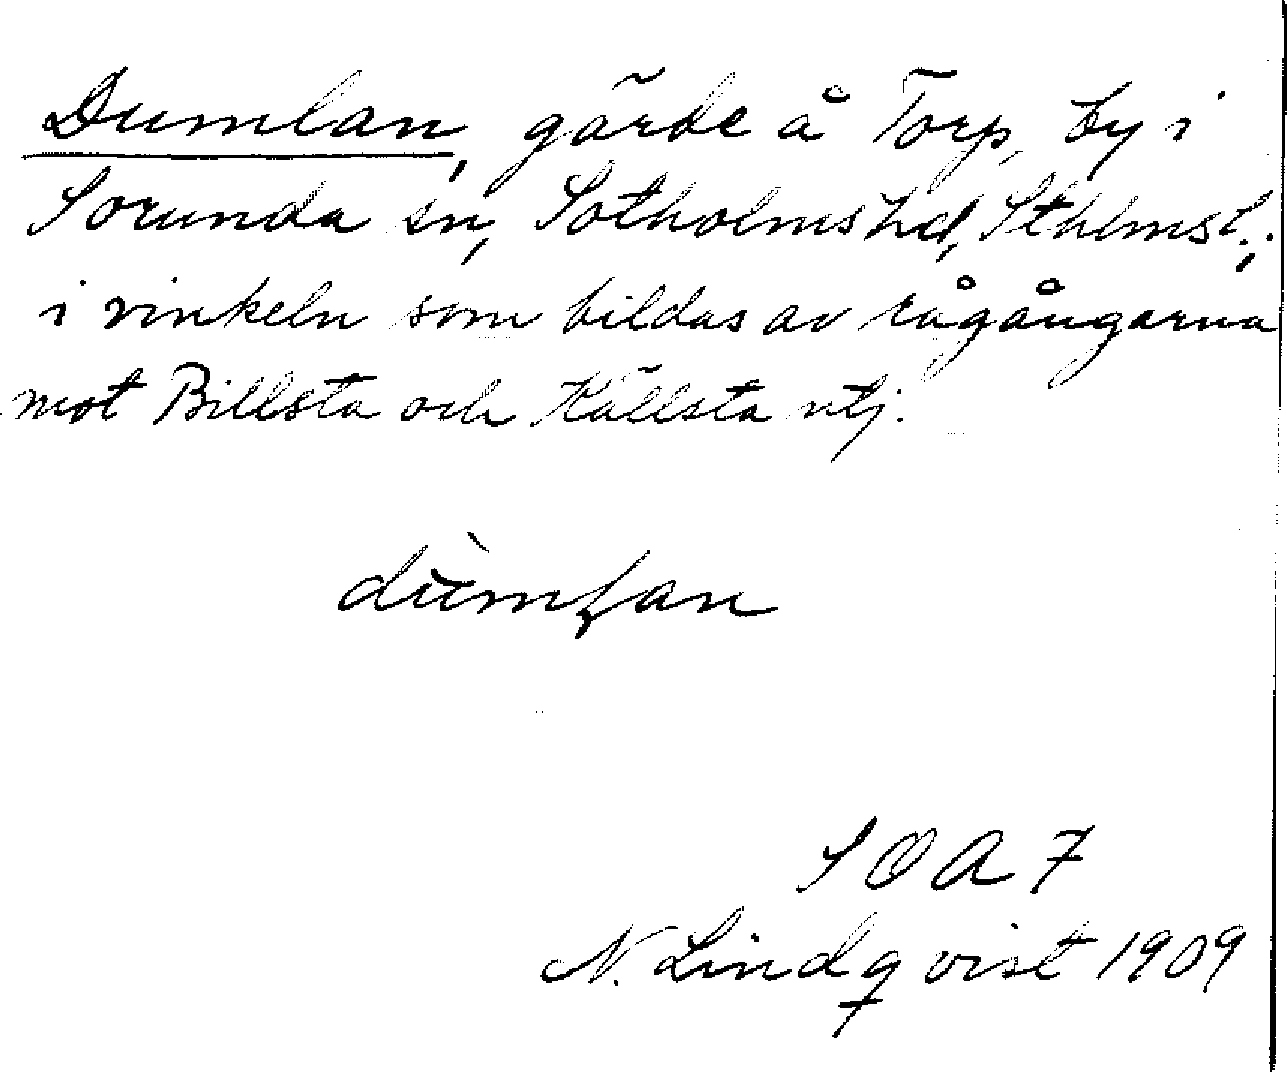 Dumlan, gärde å Torp, by i
Sorunda sn, Sotholms hd, Sthlms l.;
i vinkeln som bildas av rågångarna
mot Billsta och Källsta utj.
SOA 7
N. Lindqvist 1909